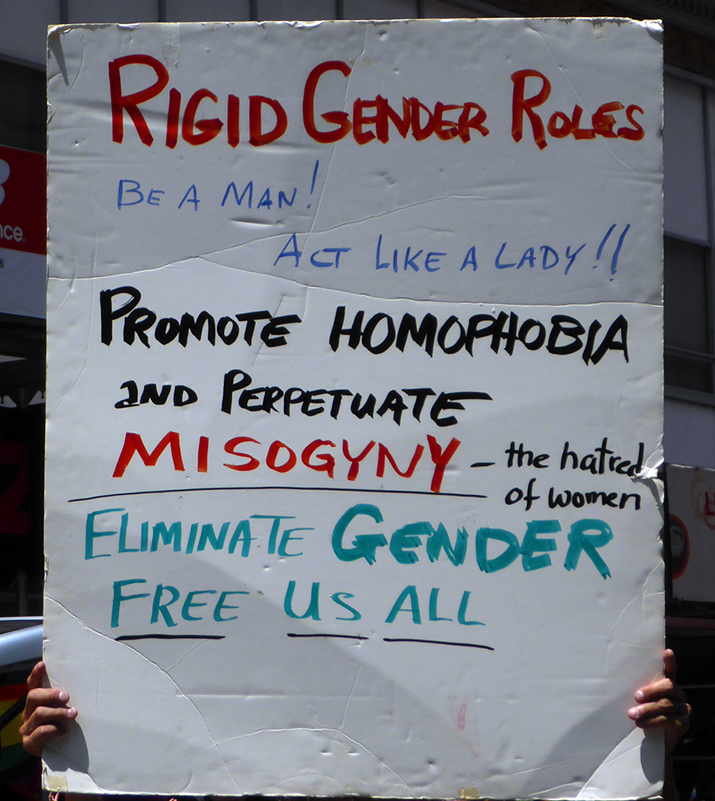 RIGID GENDER ROLES
BE A MAN!
ACT LIKE A LADY!!
PROMOTE HOMOPHOBIA
AND PERPETUATE
MISOGYNY – the hatred
of women
ELIMINATE GENDER
FREE US ALL